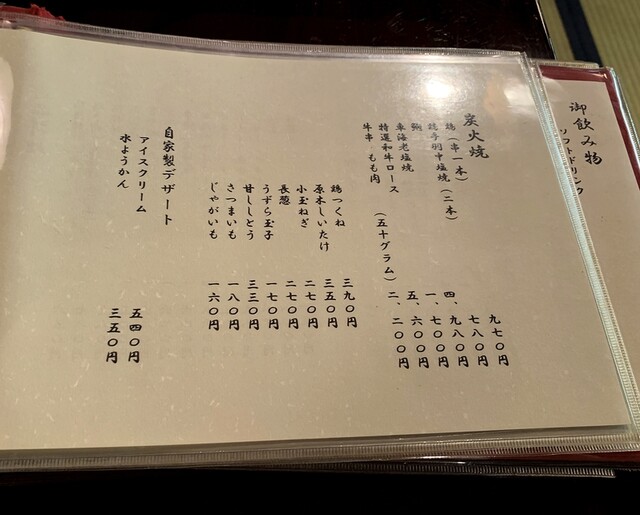 御飲み物
ソフトドリンク
炭火焼
鶏(串一本) 九七〇円
鶏手羽中塩焼(二本) 七八〇円
鮑 四、九八〇円
車海老塩焼 一、七〇〇円
特選和牛ロース (五十グラム) 五、六〇〇円
牛串 もも肉 二、二〇〇円
鶏つくね 三九〇円
原木しいたけ 三五〇円
小玉ねぎ 二七〇円
長葱 二七〇円
うずら玉子 一七〇円
甘ししとう 三三〇円
さつまいも 一八〇円
じゃがいも 一六〇円
自家製デザート
アイスクリーム 五四〇円
水ようかん 三五〇円